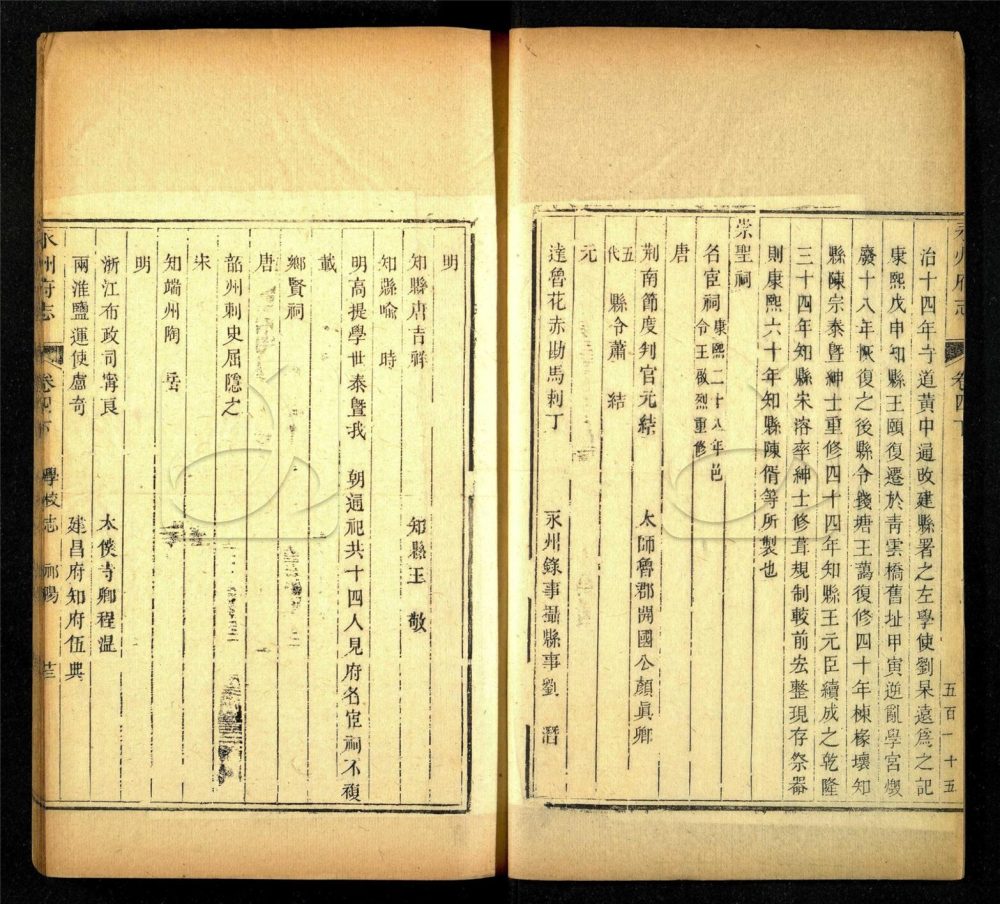 永州府志 卷四下 五百一十五
治十四年守道黃中通改建縣署之左學使劉杲遠爲之記
康熙戊申知縣王頤復遷於靑雲橋舊址甲寅逆亂學宮燬
廢十八年恢復之後縣令錢塘王藹復修四十年棟椽壞知
縣陳宗泰曁紳士重修四十四年知縣王元臣續成之乾隆
三十四年知縣宋溶率紳士修葺規制較前宏整現存祭器
則康熙六十年知縣陳偦等所製也
崇聖祠
名宦祠 康熙二十八年邑
令王啟烈重修
唐
荆南節度判官元結 太師魯郡開國公顏眞卿
五代 縣令蕭 結
元
達魯花赤勘馬剌丁 永州錄事攝縣事劉 潛
明
知縣唐吉祥 知縣王 敬
知縣喻 時
明高提學世泰曁我 朝通祀共十四人見府名宦祠不複
載
鄉賢祠
唐
韶州刺史屈隱之
宋
知端州陶 岳
明
浙江布政司甯良 太僕寺卿程温
兩淮鹽運使盧奇 建昌府知府伍典
永州府志 卷四下 學校志 祁陽